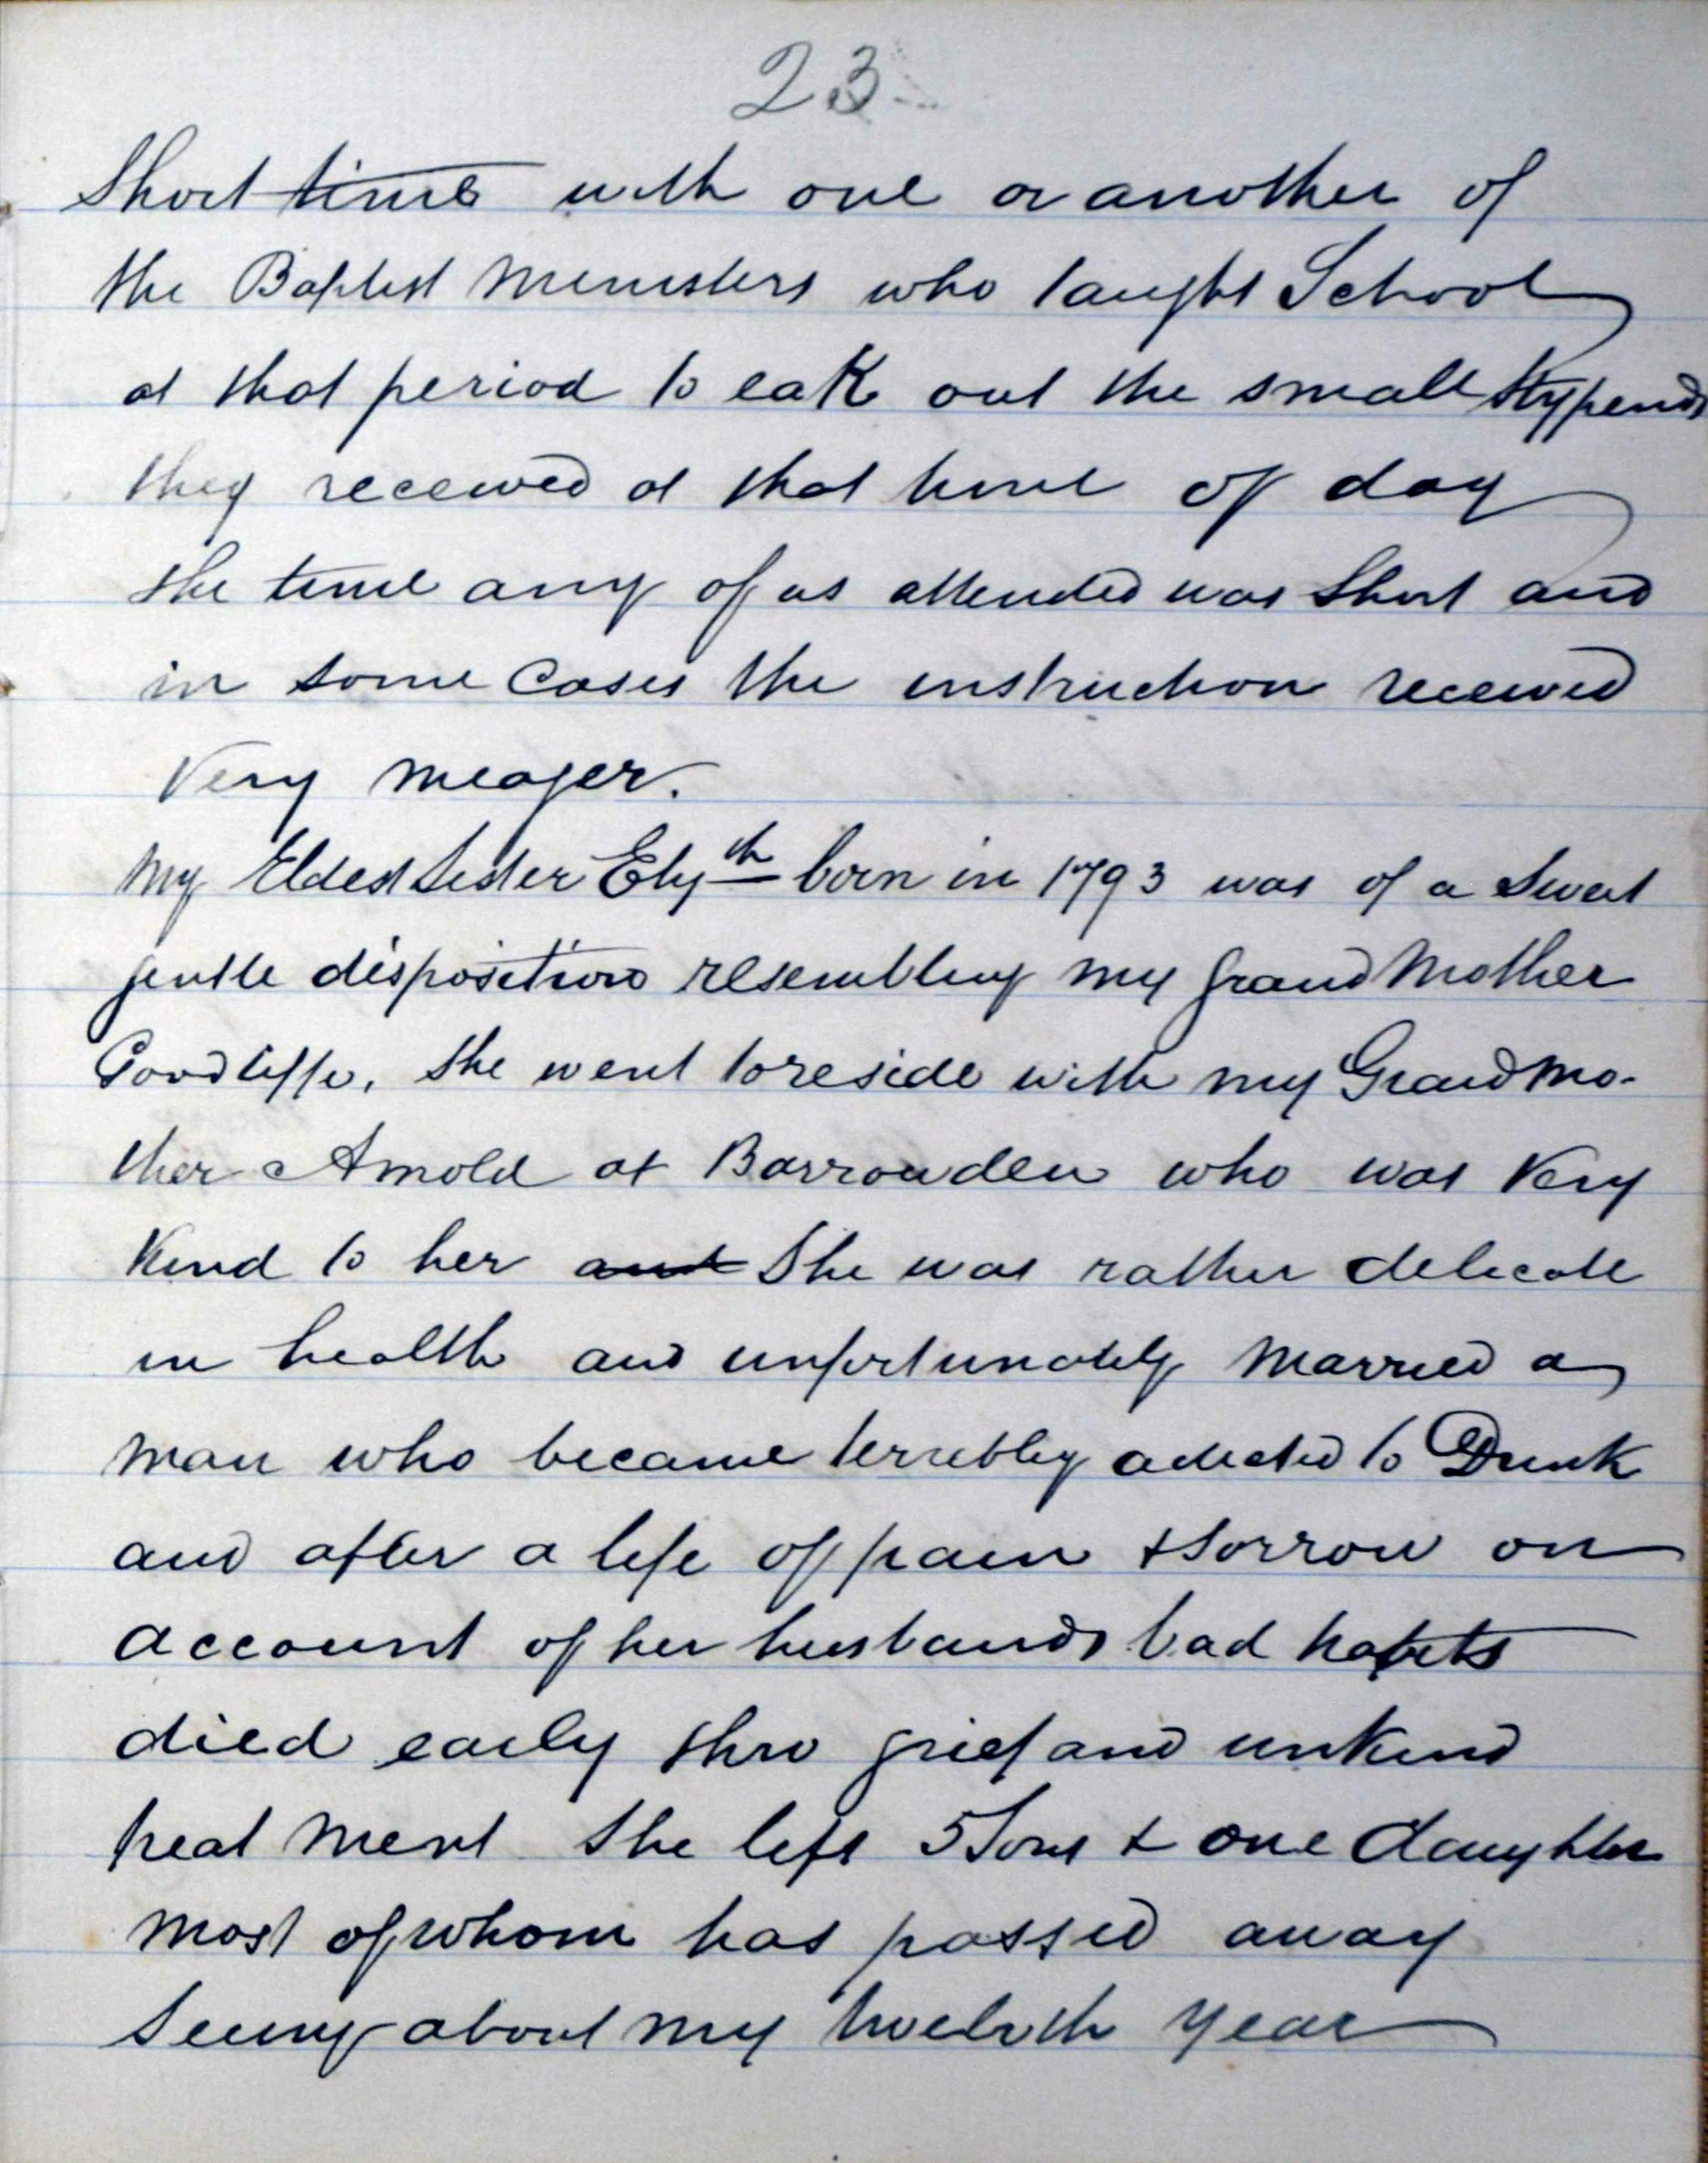 23
Short time with one or another of
the Baptist Ministers who taught School
at that period to eak out the small Stypends
they received at that time of day
the time any of us attended was Short and
in some Cases the instruction received
Very meager.
My Eldest Sister Elyth born in 1793 was of a Sweet
gentle disposition resembling my grand Mother
Goodliffe, She went to reside with my Grand Mo-
ther Arnold at Barrowden who was Very
Kind to her and She was rather delicate
in health and unfortunately Married a
man who became terribly adicted to Drink
and after a life of pain & Sorrow on
account of her husbands bad habits
died early thro grief and unkind
treat Ment She left 5 Sons & one daughter
most of whom has passed away
about my twelvth year